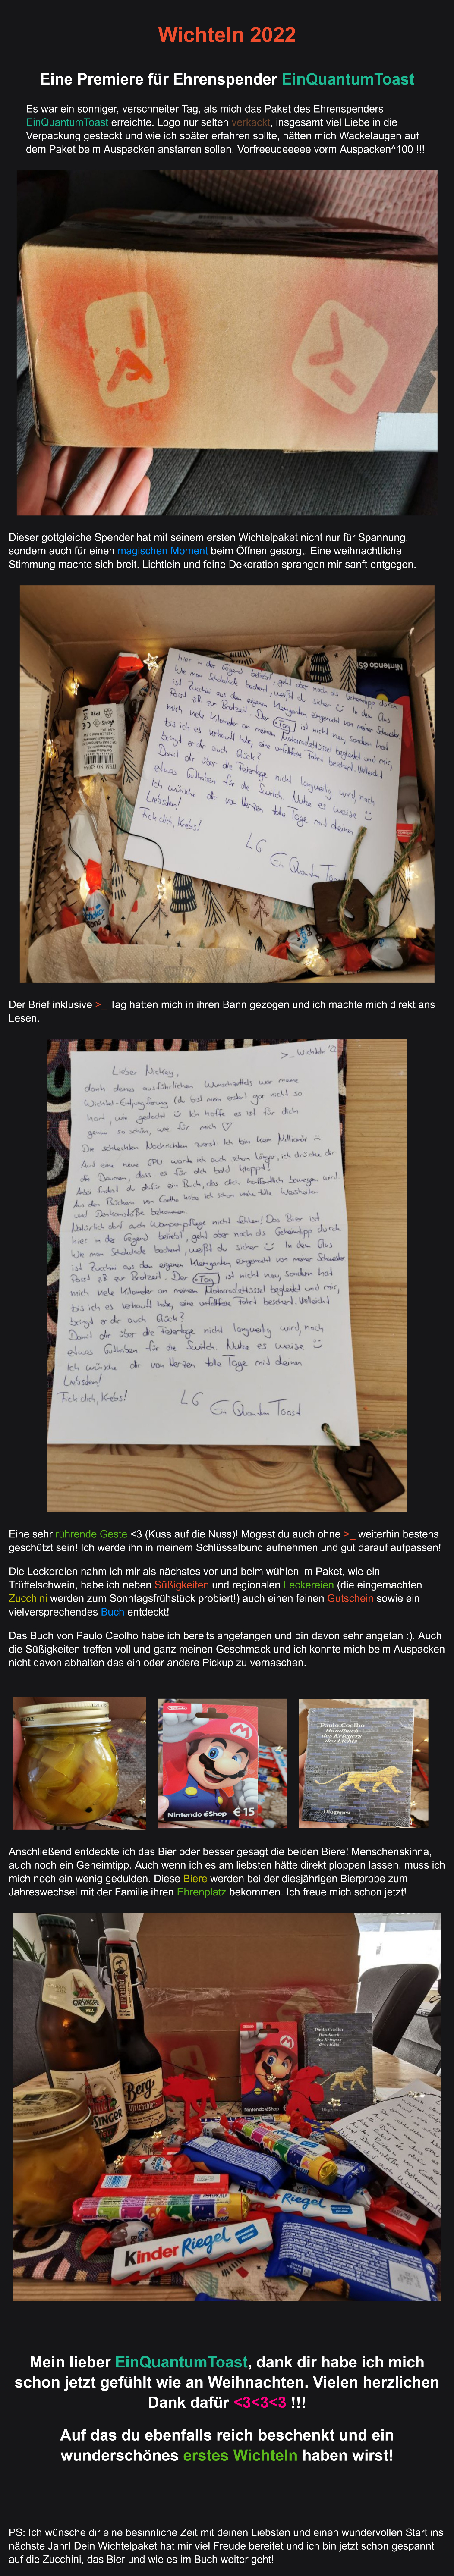 Wichteln 2022
Eine Premiere für Ehrenspender EinQuantumToast
Es war ein sonniger, verschneiter Tag, als mich das Paket des Ehrenspenders
EinQuantumToast erreichte. Logo nur selten verkackt, insgesamt viel Liebe in die
Verpackung gesteckt und wie ich später erfahren sollte, hätten mich Wackelaugen auf
dem Paket beim Auspacken anstarren sollen. Vorfreeudeeeee vorm Auspacken^100 !!!
Dieser gottgleiche Spender hat mit seinem ersten Wichtelpaket nicht nur für Spannung,
sondern auch für einen magischen Moment beim Öffnen gesorgt. Eine weihnachtliche
Stimmung machte sich breit. Lichtlein und feine Dekoration sprangen mir sanft entgegen.
hier in der Gegend beliebt, geht aber noch als Geheimtipp durch.
Wo man Schokolade bestehend, weißt du sicher :) In dem Glas
ist Zucchini aus dem eigenen Kleingarten eingemacht von meiner Schwester
Passt zB zur Brotzeit. Der Tag ist nicht neu, sondern hat
mich viele Kilometer an meinem Motorradschlüssel begleitet und mir,
bis ich es verkauft habe, eine unfallfreie Fahrt beschert. Vielleicht
bringt er dir auch Glück?
Damit dir über die Feiertage nicht langweilig wird, noch
etwas Guthaben für die Switch. Nutze es weise :)
Ich wünsche dir von Herzen tolle Tage mit deinen
Liebsten!
Fick dich, Krebs!
LG
Ein Quantum Toast
Nintendo eS
Der Brief inklusive >_ Tag hatten mich in ihren Bann gezogen und ich machte mich direkt ans
Lesen.
>_ Wichteln '22
Lieber Nickey,
dank deines ausführlichen Wunschzettels war meine
Wichtel-Entjungferung (du bist mein erster) gar nicht so
hart, wie gedacht :) Ich hoffe es ist für dich
genau so schön, wie für mich ♡
Die schlechten Nachrichten zuerst: Ich bin kein Millionär
Auf eine neue CPU warte ich auch schon länger, ich drücke dir
die Daumen, dass es für dich bald klappt!
Also findest du dafür ein Buch, das dich hoffentlich bewegen wird
Aus den Büchern von Coelho habe ich schon viele tolle Weisheiten
und Denkanstöße bekommen.
Natürlich darf auch Wampenpflege nicht fehlen! Das Bier ist
hier in der Gegend beliebt, geht aber noch als Geheimtipp durch.
Wo man Schokolade bestehend, weißt du sicher :) In dem Glas
ist Zucchini aus dem eigenen Kleingarten eingemacht von meiner Schwester
Passt zB zur Brotzeit. Der Tag ist nicht neu, sondern hat
mich viele Kilometer an meinem Motorradschlüssel begleitet und mir,
bis ich es verkauft habe, eine unfallfreie Fahrt beschert. Vielleicht
bringt er dir auch Glück?
Damit dir über die Feiertage nicht langweilig wird, noch
etwas Guthaben für die Switch. Nutze es weise :)
Ich wünsche dir von Herzen tolle Tage mit deinen
Liebsten!
Fick dich, Krebs!
LG
Ein Quantum Toast
Eine sehr rührende Geste <3 (Kuss auf die Nuss)! Mögest du auch ohne >_ weiterhin bestens
geschützt sein! Ich werde ihn in meinem Schlüsselbund aufnehmen und gut darauf aufpassen!
Die Leckereien nahm ich mir als nächstes vor und beim wühlen im Paket, wie ein
Trüffelschwein, habe ich neben Süßigkeiten und regionalen Leckereien (die eingemachten
Zucchini werden zum Sonntagsfrühstück probiert!) auch einen feinen Gutschein sowie ein
vielversprechendes Buch entdeckt!
Das Buch von Paulo Ceolho habe ich bereits angefangen und bin davon sehr angetan :). Auch
die Süßigkeiten treffen voll und ganz meinen Geschmack und ich konnte mich beim Auspacken
nicht davon abhalten das ein oder andere Pickup zu vernaschen.
Nintendo eShop € 15
Paulo Coelho
Handbuch
des Kriegers
des Lichts
Diogenes
Anschließend entdeckte ich das Bier oder besser gesagt die beiden Biere! Menschenskinna,
auch noch ein Geheimtipp. Auch wenn ich es am liebsten hätte direkt ploppen lassen, muss ich
mich noch ein wenig gedulden. Diese Biere werden bei der diesjährigen Bierprobe zum
Jahreswechsel mit der Familie ihren Ehrenplatz bekommen. Ich freue mich schon jetzt!
Berg
Nintendo eShop
Paulo Coelho
Handbuch
des Kriegers
des Lichts
Kinder Riegel
Riegel
Mein lieber EinQuantumToast, dank dir habe ich mich
schon jetzt gefühlt wie an Weihnachten. Vielen herzlichen
Dank dafür <3<3<3 !!!
Auf das du ebenfalls reich beschenkt und ein
wunderschönes erstes Wichteln haben wirst!
PS: Ich wünsche dir eine besinnliche Zeit mit deinen Liebsten und einen wundervollen Start ins
nächste Jahr! Dein Wichtelpaket hat mir viel Freude bereitet und ich bin jetzt schon gespannt
auf die Zucchini, das Bier und wie es im Buch weiter geht!